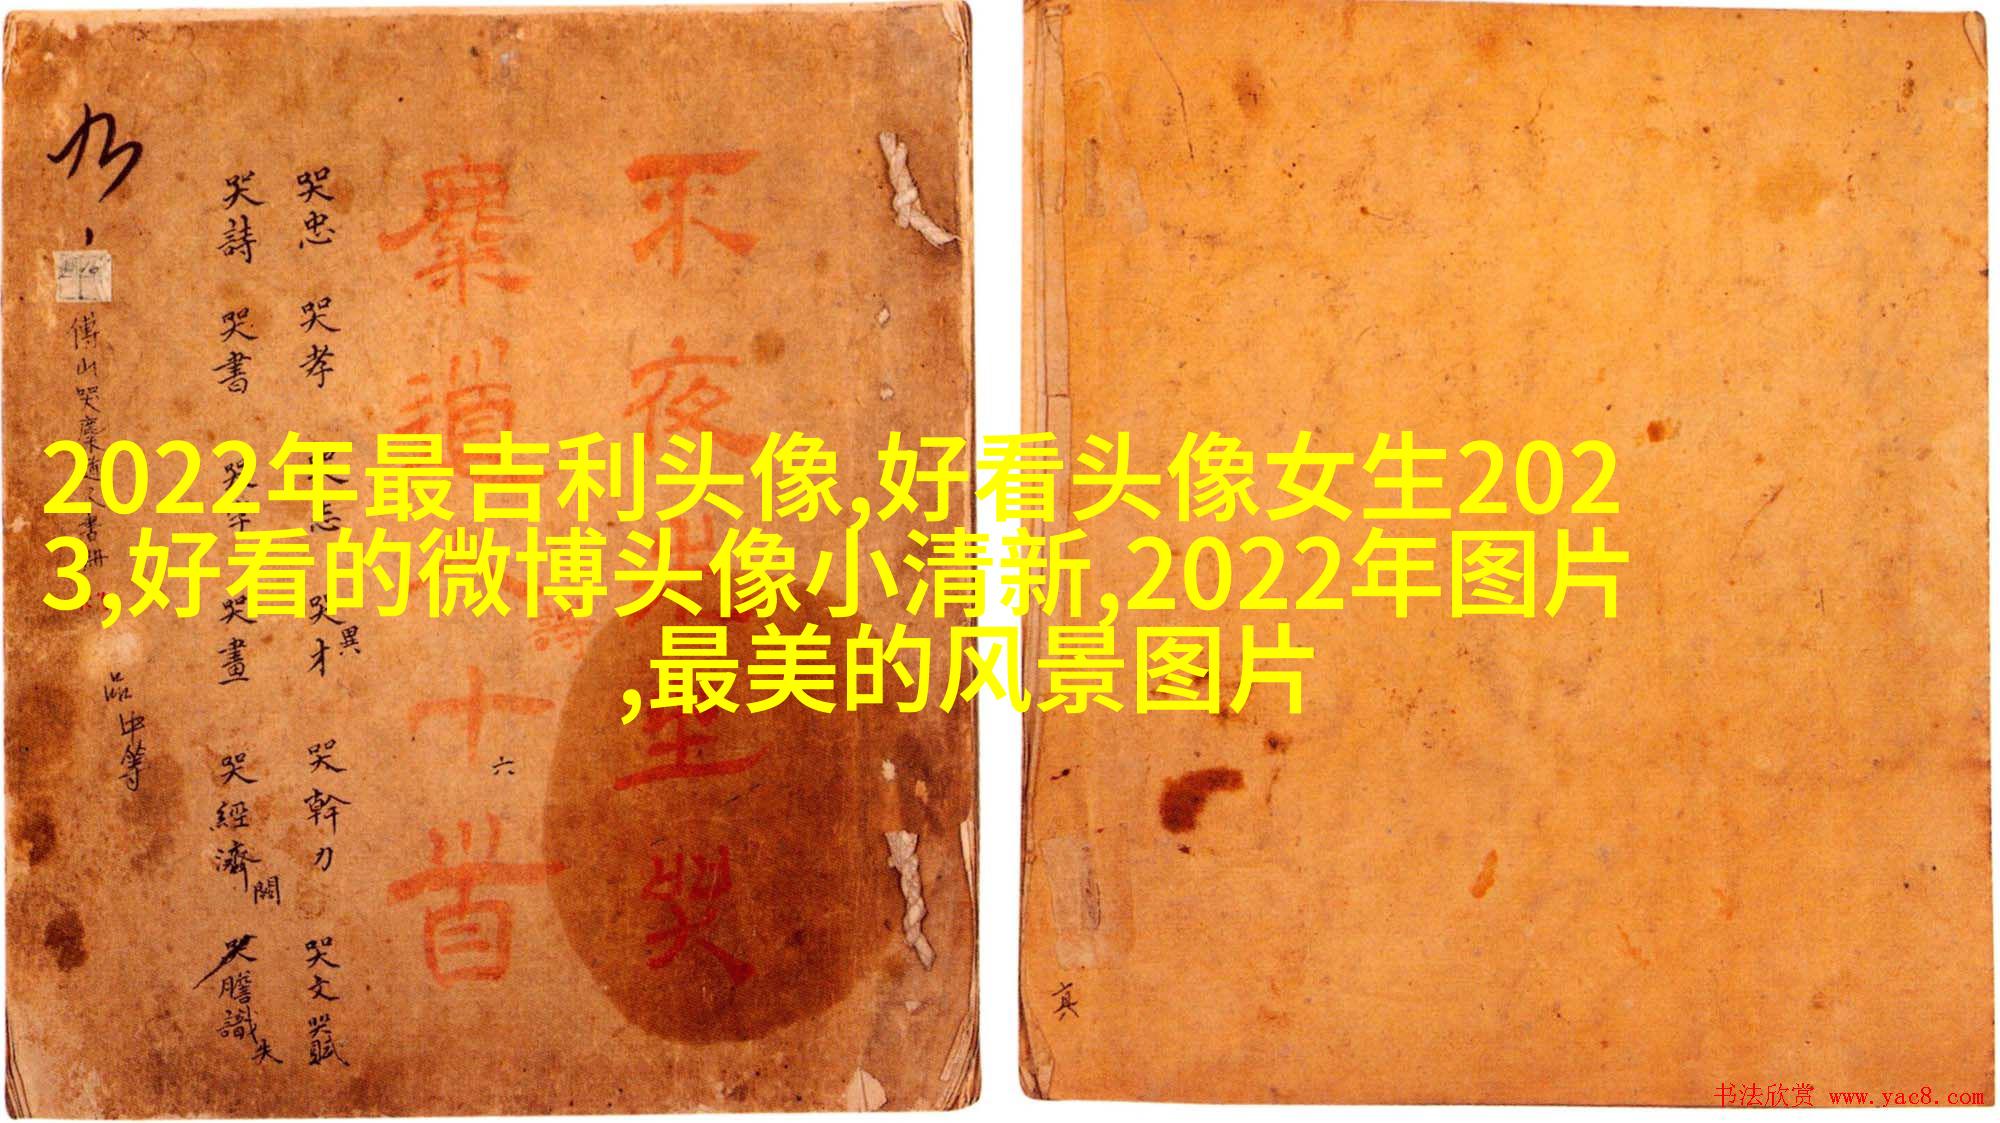 2022年最吉利头像,好看头像女生202
3,好看的微博头像小清新,2022年图片
,最美的风景图片
不夜
哭
麋道
十首
六
哭忠 哭孝
哭才異 哭幹力 哭文 哭賦
哭詩 哭書
哭畫 哭經濟 哭膽識
傅山哭麋道人書冊
品中等
真
书法欣赏 www.yac8.com